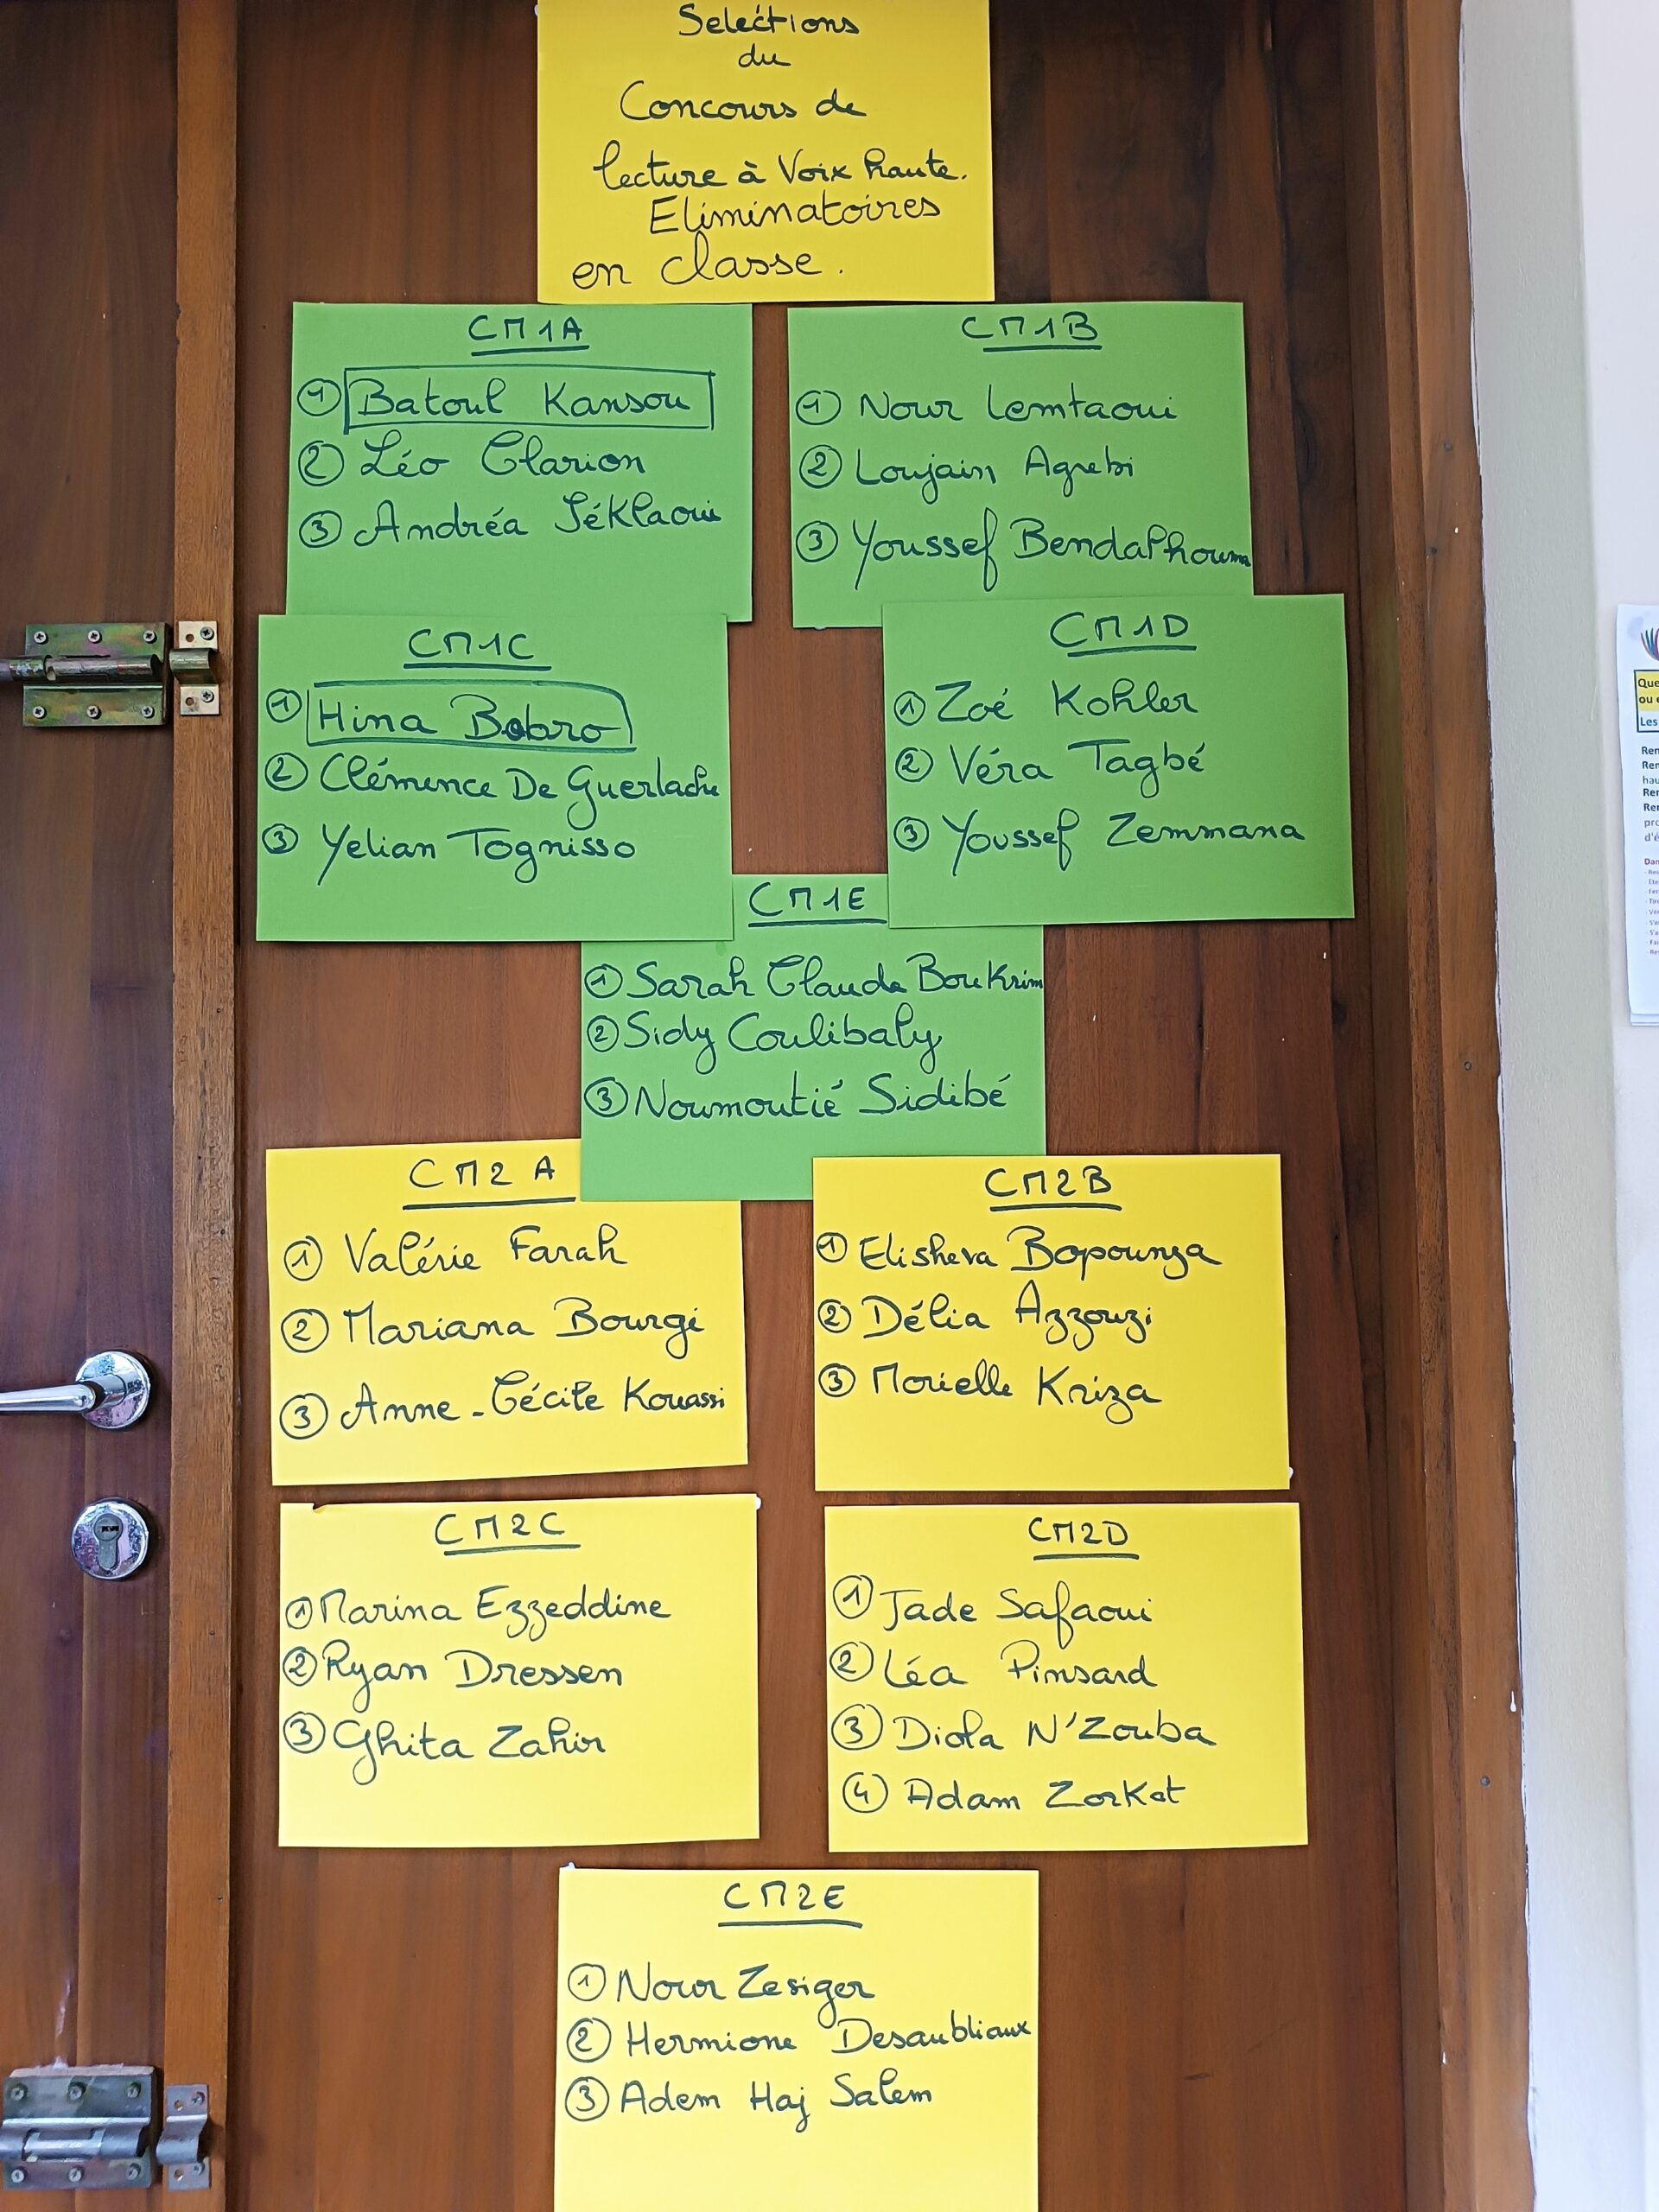 Seléctions
du
Concours de
lecture à Voix haute.
Eliminatoires
en classe.
CM1A
① Batoul Kansou
② Léo Clarion
③ Andréa Téklaoui
CM1B
① Nour Lemtaoui
② Loujain Agrebi
③ Youssef Bendalhouma
CM1C
① Hina Bobro
② Clémence De Guerlache
③ Yelian Tognisso
CM1D
① Zoé Kohler
② Véra Tagbé
③ Youssef Zemmama
CM1E
① Sarah Claude Boukrim
② Sidy Coulibaly
③ Noumoutié Sidibé
CM2 A
① Valérie Farah
② Mariana Bourgi
③ Anne-Cécile Kouassi
CM2B
① Elisheva Bopounza
② Délia Azzouzi
③ Morielle Kriza
CM2C
① Marina Ezzeddine
② Ryan Dressen
③ Ghita Zahir
CM2D
① Jade Safaoui
② Léa Pinsard
③ Diola N'Zouba
④ Adam Zorkot
CM2E
① Nour Zesiger
② Hermione Desaubliaux
③ Adem Haj Salem
Que
ou e
Les